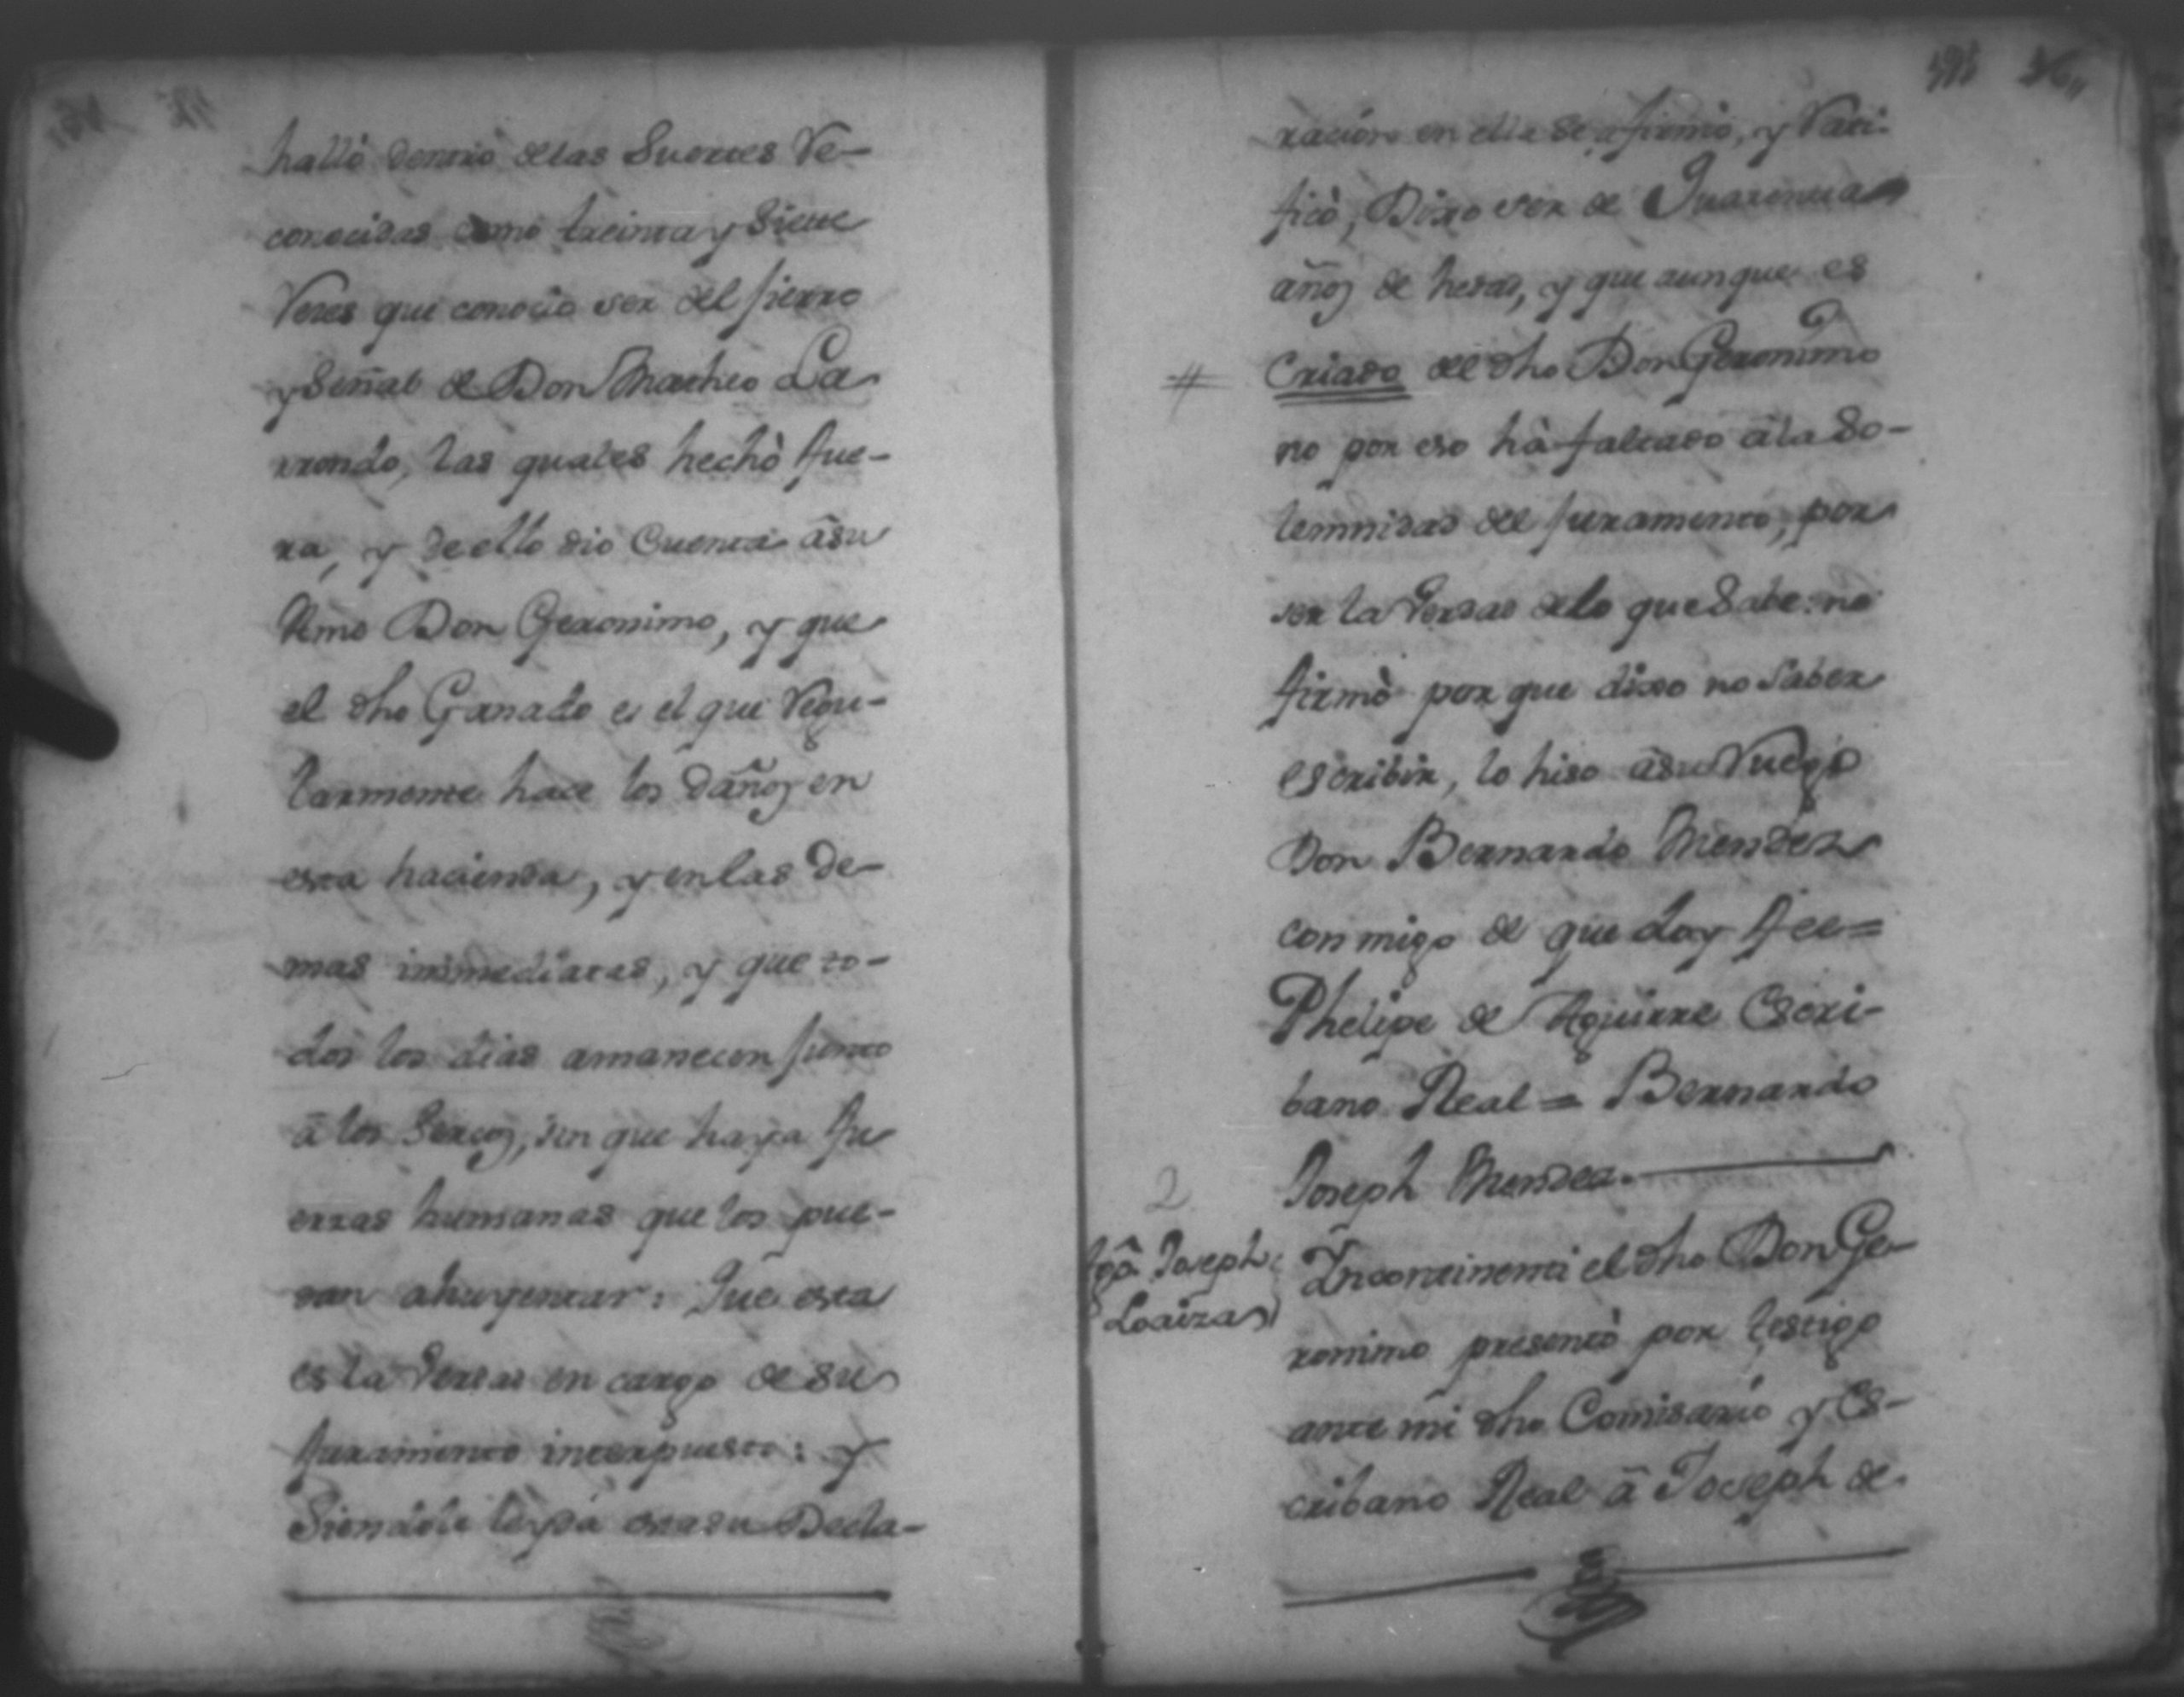 halló dentro delas Suertes Re-
conocidas como treinta y Siete
Reses que conocio ser del fierro
y Señal de Don Matheo La
rrondo, las quales hechò fue-
ra, y de ello dio Cuenta âsu
Amo Don Geronimo, y que
el dho Ganado es el que Regu-
larmente hace los daños en
esta hacienda, y enlas De-
mas immediatas, y que to-
dos los dias amanecen junto
â los Sercos, sin que haya fu
erzas humanas que los pue-
dan ahuyentar: Que esta
es la Verdad en cargo de su
juramento interpuesto: y
Siendole leyda esta su Decla-
racion en ella se afirmò, y Rati-
ficò, Dixo ser de Quarenta
años de hedad, y que aunque es
Criado del dho Don Geronimo
no por eso hà faltado â la So-
lemnidad del juramento, por
ser la Verdad delo que Sabe: no
firmò por que dixo no Saber
escribir, lo hiso âsu Ruego
Don Bernardo Mendez
conmigo de que doy fee=
Phelipe de Aguirre Escri-
bano Real = Bernardo
Joseph Mendez.
2
tgô Joseph
Loaiza
Incontinenti el dho Don Ge-
ronimo presentò por testigo
ante mi dho Comisario y Es-
cribano Real â Joseph de